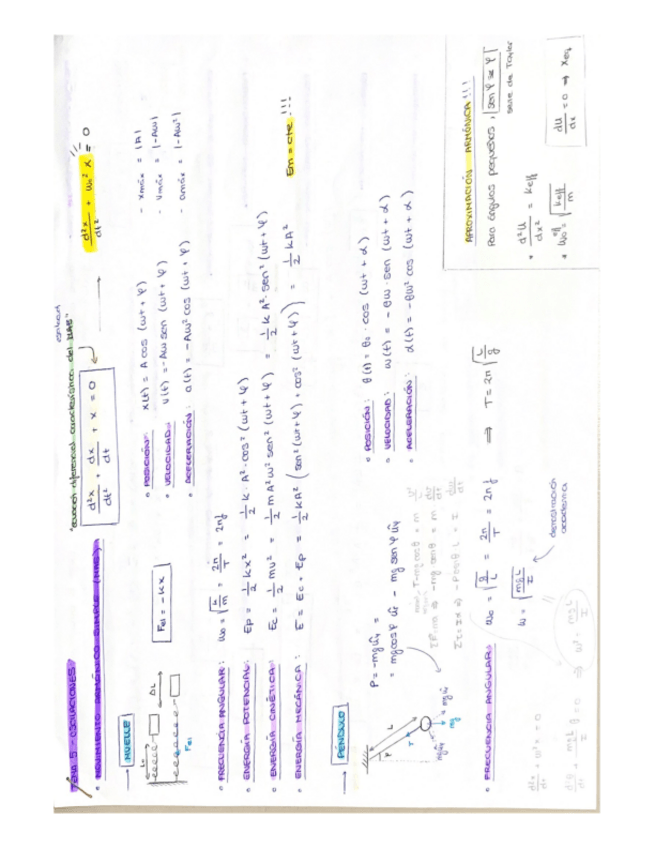 TEMA 5 - OSCILACIONES
• MOVIMIENTO ARMÓNICO SIMPLE (MAS)
"ecuación diferencial característica del MAS"
d²x/dt² + dx/dt + x = 0
d²x/dt² + ω₀² x = 0
→ MUELLE
L₀
ΔL
Fel
Fel = -kx
• POSICIÓN: x(t) = A cos (ωt + φ)
• VELOCIDAD: v(t) = -Aω sen (ωt + φ)
• ACELERACIÓN: a(t) = -Aω² cos (ωt + φ)
- xmáx = |A|
- vmáx = |-Aω|
- amáx = |-Aω²|
• FRECUENCIA ANGULAR: ω₀ = √(k/m) = 2π/T = 2πf
• ENERGÍA POTENCIAL: Ep = 1/2 kx² = 1/2 k·A²·cos² (ωt + φ)
• ENERGÍA CINÉTICA: Ec = 1/2 mv² = 1/2 mA²ω² sen² (ωt + φ) = 1/2 k A²·sen² (ωt + φ)
• ENERGÍA MECÁNICA: E = Ec + Ep = 1/2 kA² (sen² (ωt+φ) + cos² (ωt+φ)) = 1/2 kA²
Em = cte !!!
→ PÉNDULO
L
T
mg
P = -mg ûy =
= mg cosφ ûr - mg senφ ûφ
• POSICIÓN: θ(t) = θ₀ · cos (ωt + α)
• VELOCIDAD: ω(t) = -θω · sen (ωt + α)
• ACELERACIÓN: α(t) = -θω² cos (ωt + α)
• FRECUENCIA ANGULAR: ω₀ = √(g/L) = 2π/T = 2πf ⇒ T = 2π√(L/g)
ω = √(mgL/I)
demostración
academia
APROXIMACIÓN ARMÓNICA!!!
Para ángulos pequeños, sen φ ≈ φ
serie de Taylor
• d²U/dx² = keff
• ω₀ = √(keff/m)
dU/dx = 0 ⇒ xeq